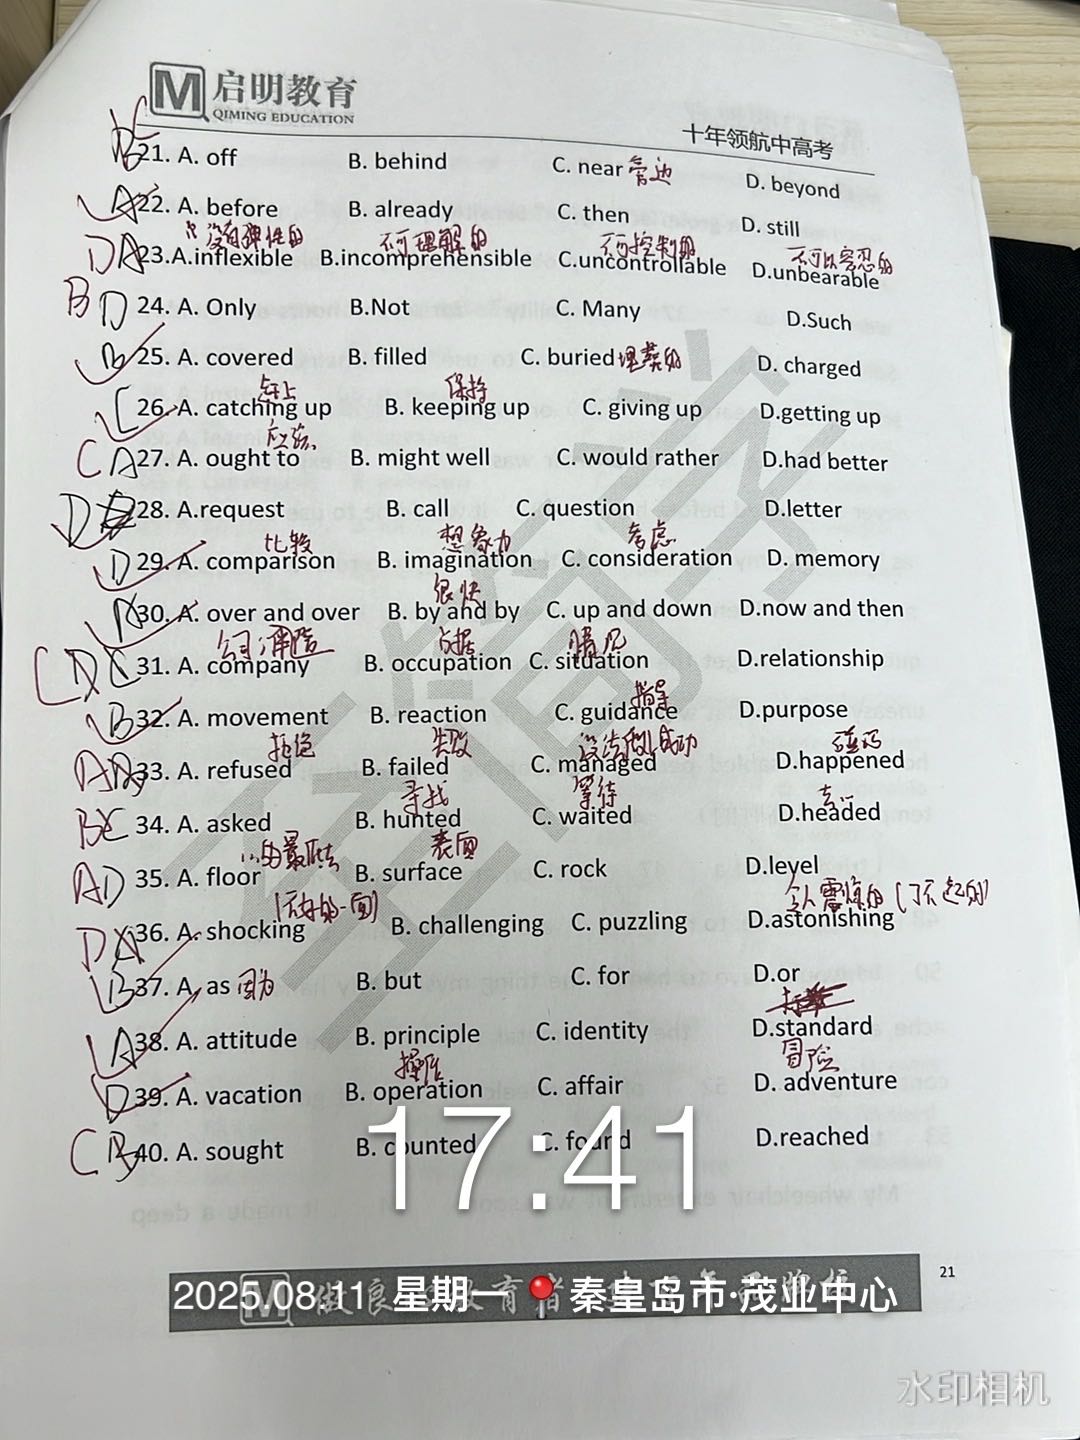 M 启明教育
QIMING EDUCATION
十年领航中高考
B 21. A. off B. behind C. near 旁边 D. beyond
A 22. A. before B. already C. then D. still
没有弹性的 不可理解的 不可控制的 不可以容忍的
D A 23.A.inflexible B.incomprehensible C.uncontrollable D.unbearable
B D 24. A. Only B.Not C. Many D.Such
B 25. A. covered B. filled C. buried 埋葬的 D. charged
赶上 保持
C 26. A. catching up B. keeping up C. giving up D.getting up
应该
C A 27. A. ought to B. might well C. would rather D.had better
D 28. A.request B. call C. question D.letter
比较 想象力 考虑
D 29. A. comparison B. imagination C. consideration D. memory
很快
A 30. A. over and over B. by and by C. up and down D.now and then
公司 占据 情况
C D C 31. A. company B. occupation C. situation D.relationship
指导
B 32. A. movement B. reaction C. guidance D.purpose
拒绝 失败 成功 碰巧
A 33. A. refused B. failed C. managed D.happened
寻找 等待 去
B C 34. A. asked B. hunted C. waited D.headed
表面
A D 35. A. floor B. surface C. rock D.level
(不好的一面) 令人震惊的(了不起的)
D A 36. A. shocking B. challenging C. puzzling D.astonishing
B 37. A. as 因为 B. but C. for D.or
A 38. A. attitude B. principle C. identity D.standard
操作 冒险
D 39. A. vacation B. operation C. affair D. adventure
C B 40. A. sought B. counted C. found D.reached
全简学
17:41
21
2025.08.11 星期一 秦皇岛市·茂业中心
水印相机